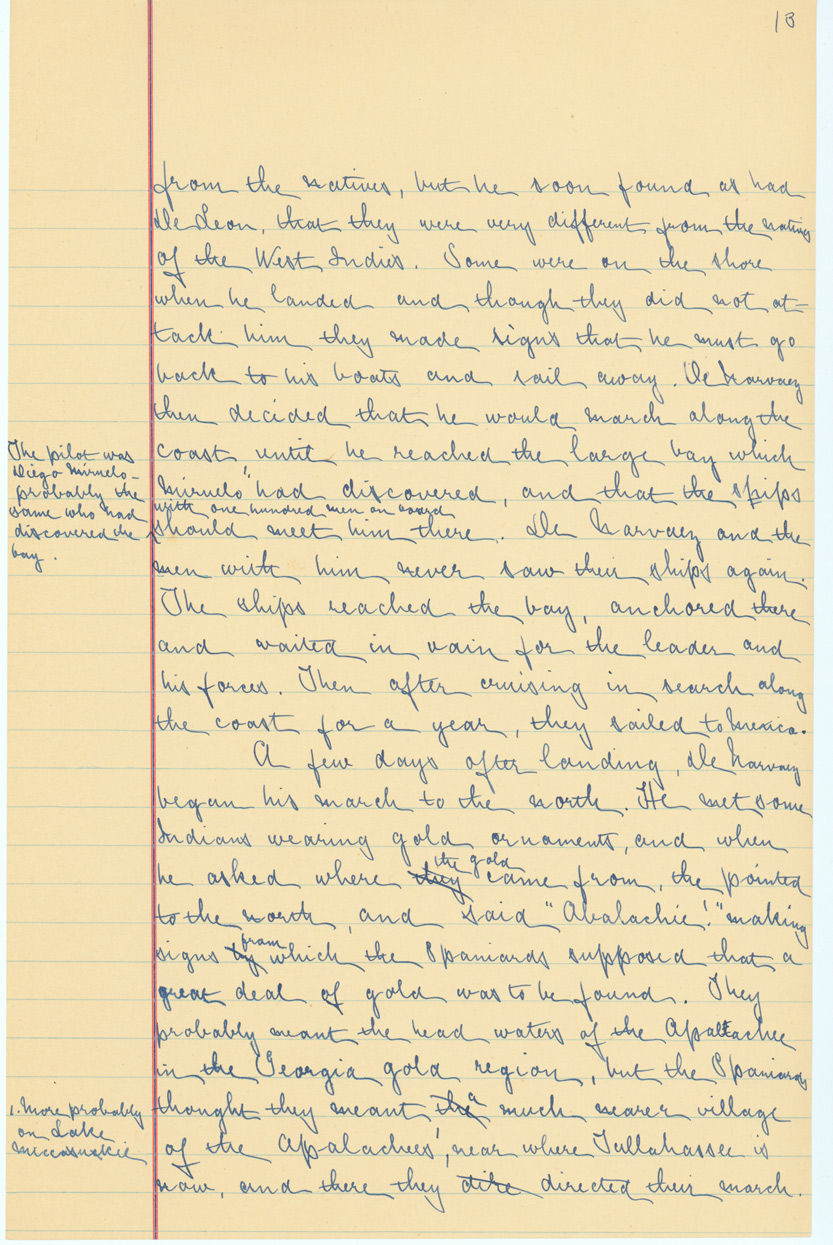 13
from the natives, but he soon found as had
De Leon, that they were very different from the natives
of the West Indies. Some were on the shore
when he landed and though they did not at-
tack him they made signs that he must go
back to his boats and sail away. De Narvaez
then decided that he would march along the
coast until he reached the large bay which
The pilot was
Diego Miruelo -
probably the
same who had
discovered the
bay.
Miruelo' had discovered, and that the ships
with one hundred men on board
should meet him there. De Narvaez and the
men with him never saw their ships again.
The ships reached the bay, anchored there
and waited in vain for the leader and
his forces. Then after cruising in search along
the coast for a year, they sailed to Mexico.
A few days after landing, De Narvaez
began his march to the north. He met some
Indians wearing gold ornaments, and when
the gold
he asked where they came from, the pointed
to the north, and said "Abalachie!" making
from
signs by which the Spaniards supposed that a
great deal of gold was to be found. They
probably meant the head waters of the Apaltachee
in the Georgia gold region, but the Spaniards
a
thought they meant the much nearer village
1. More probably
on Lake
Miccosukie
of the Apalachees', near where Tullahassee is
now, and there they dire directed their march.